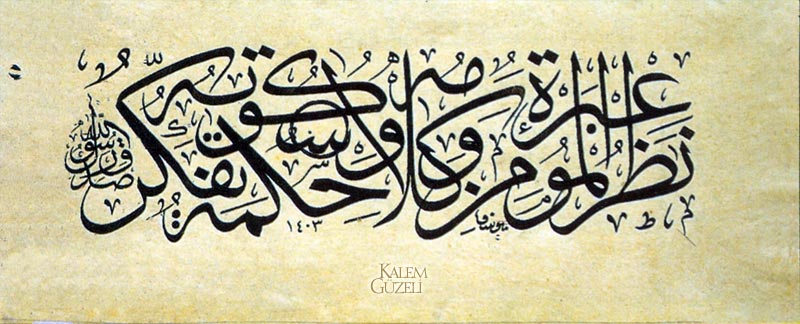 نظر المؤمن عبرة وكلامه حكمة وسكوته تفكر
صدق رسول الله
١٤٠٣
KALEM
GÜZELİ